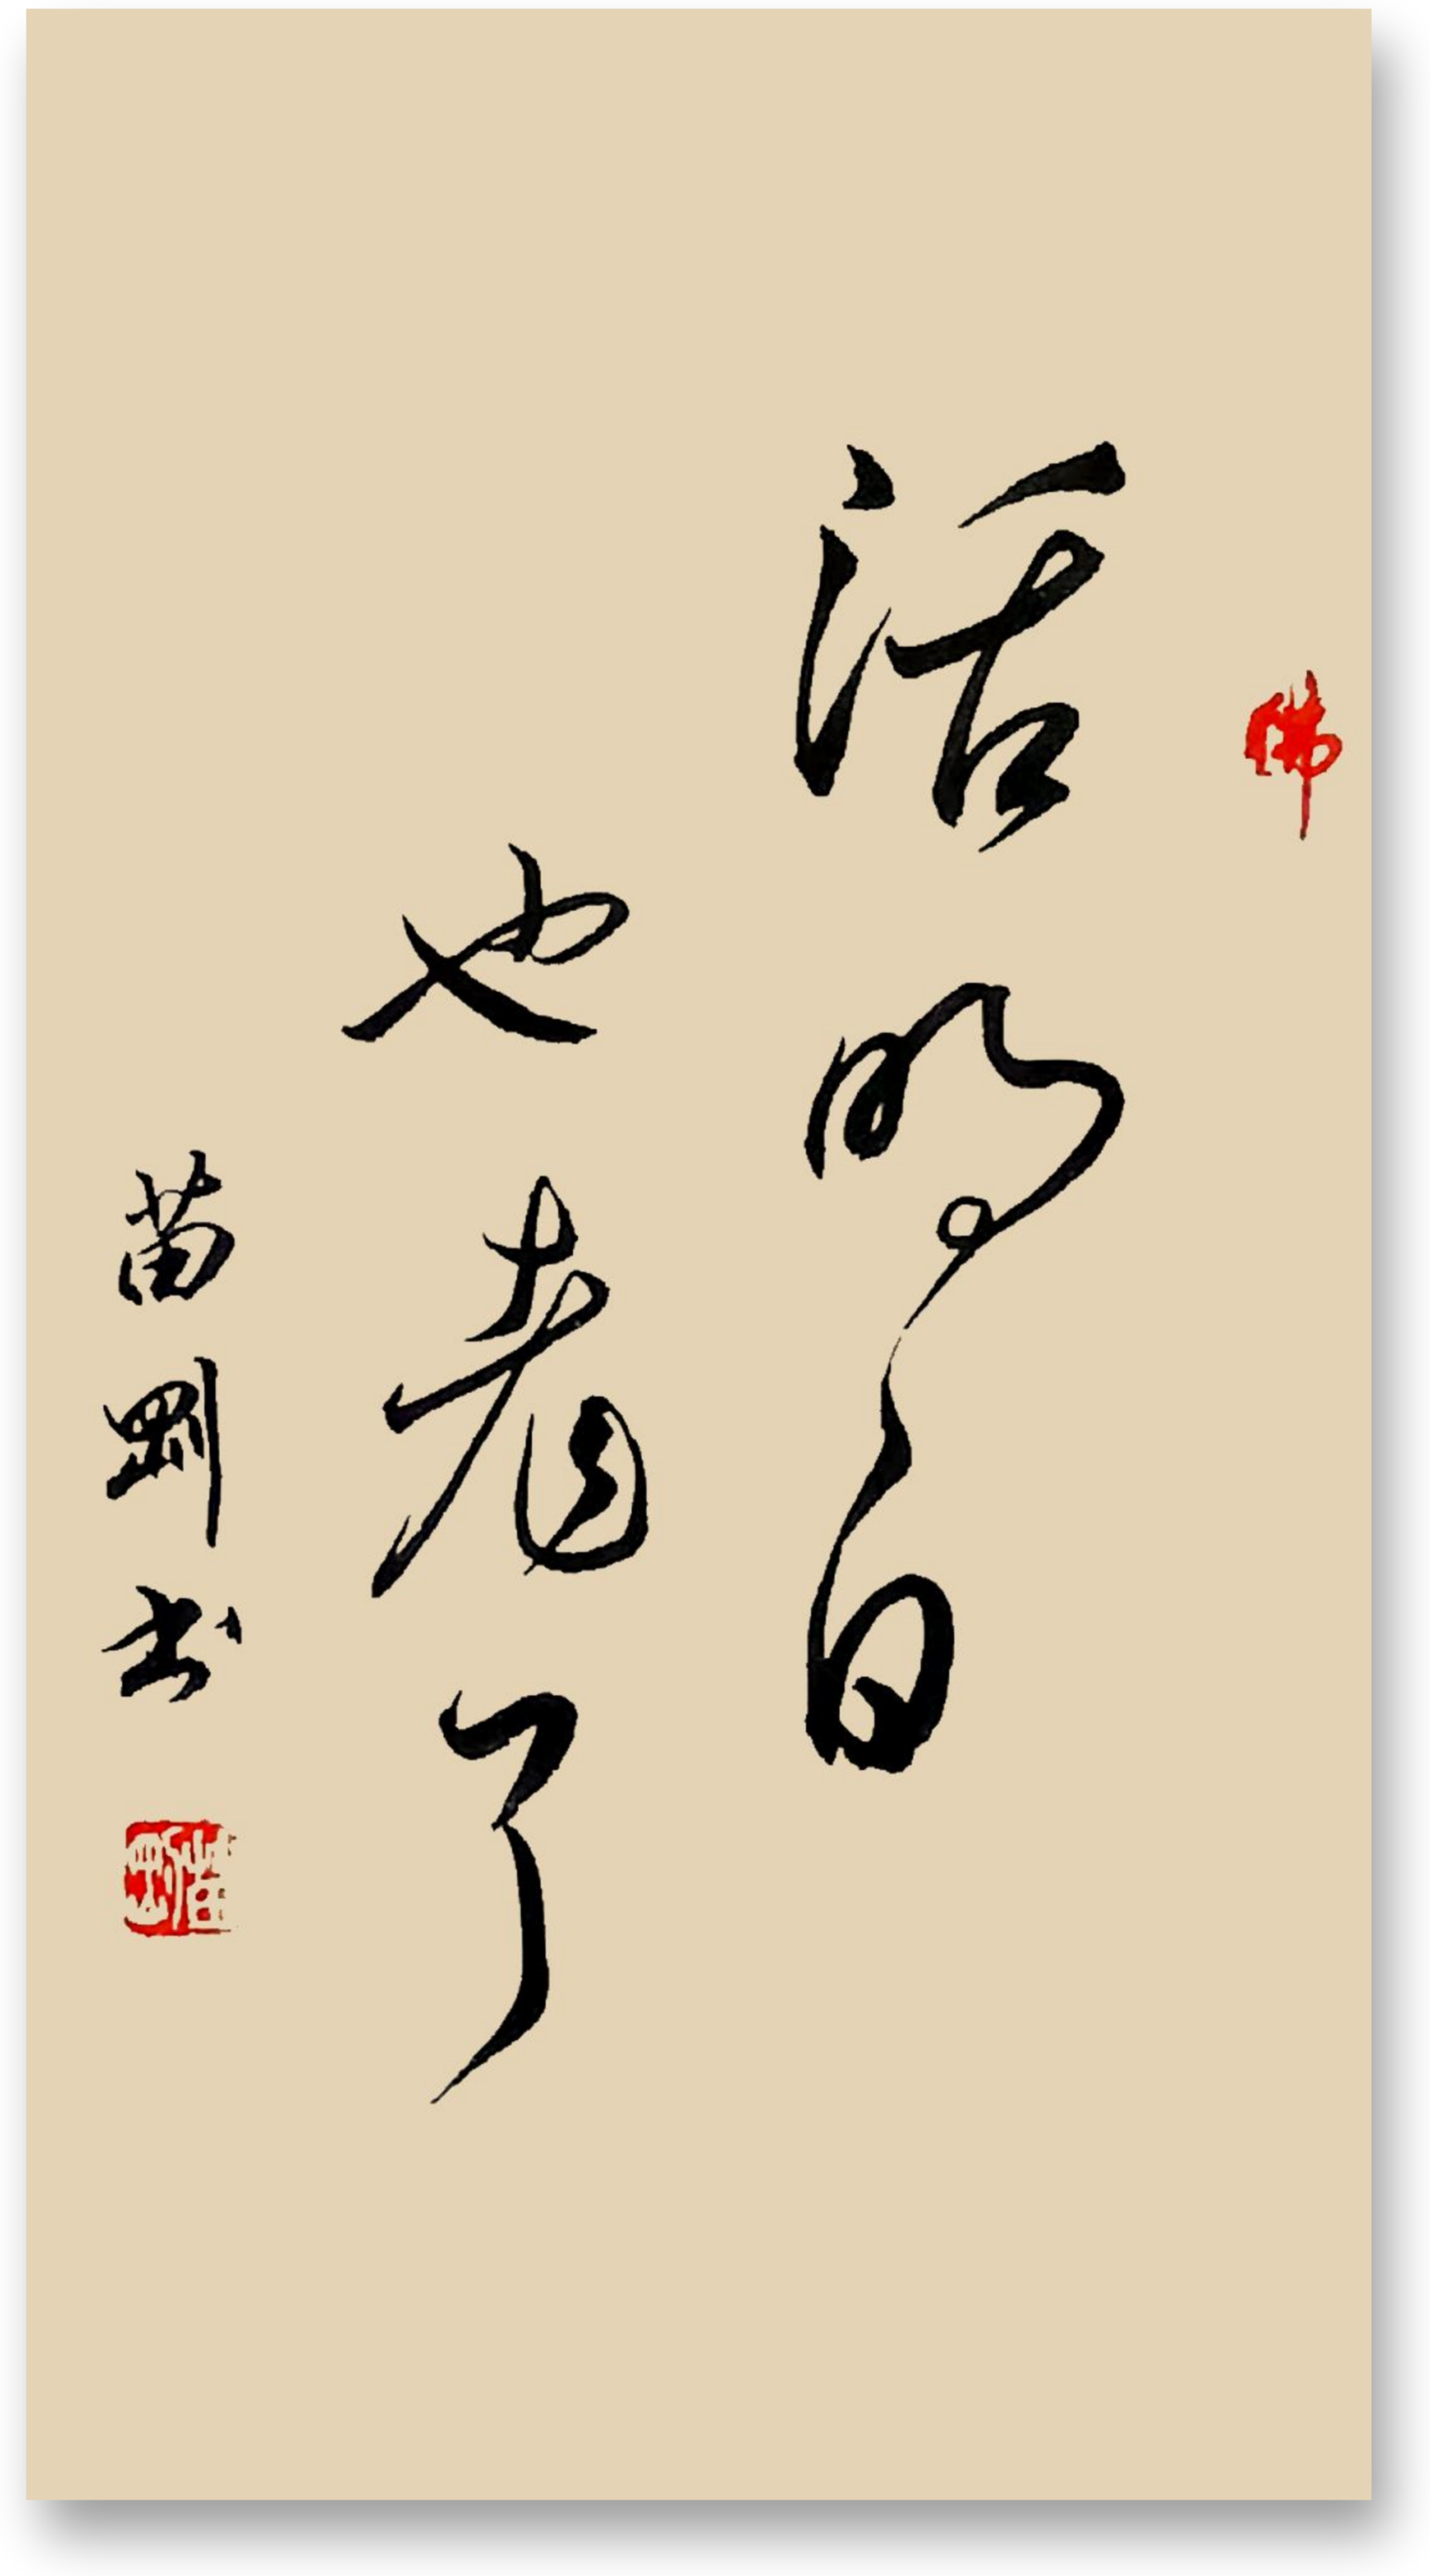 佛
活明白
也老了
苗剛书
苗剛